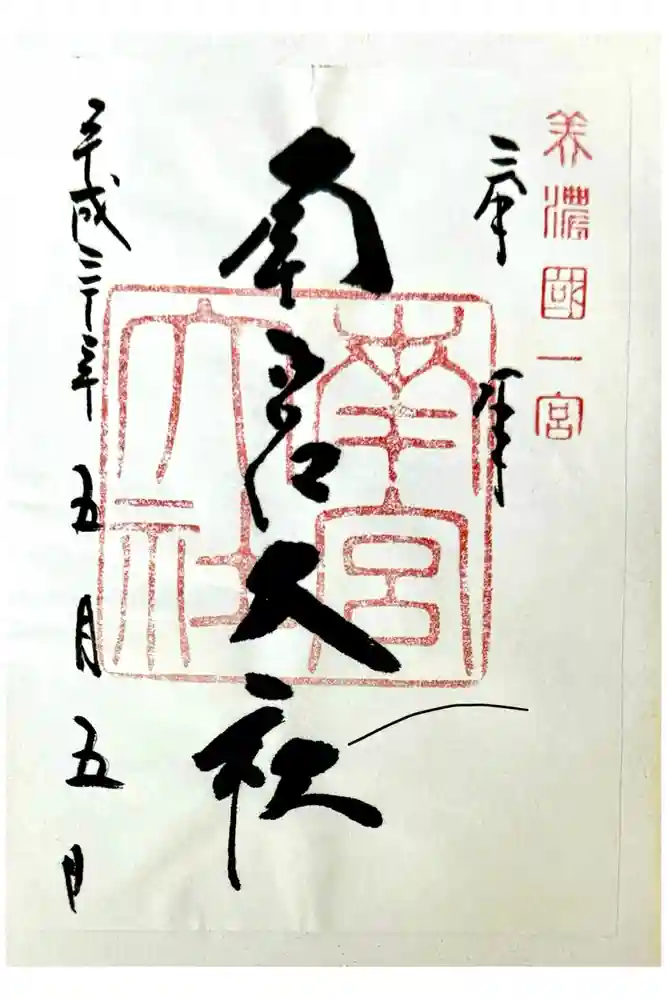 美濃國一宮
奉 拝
南宮大社
南宮大社
平成三十年五月五日